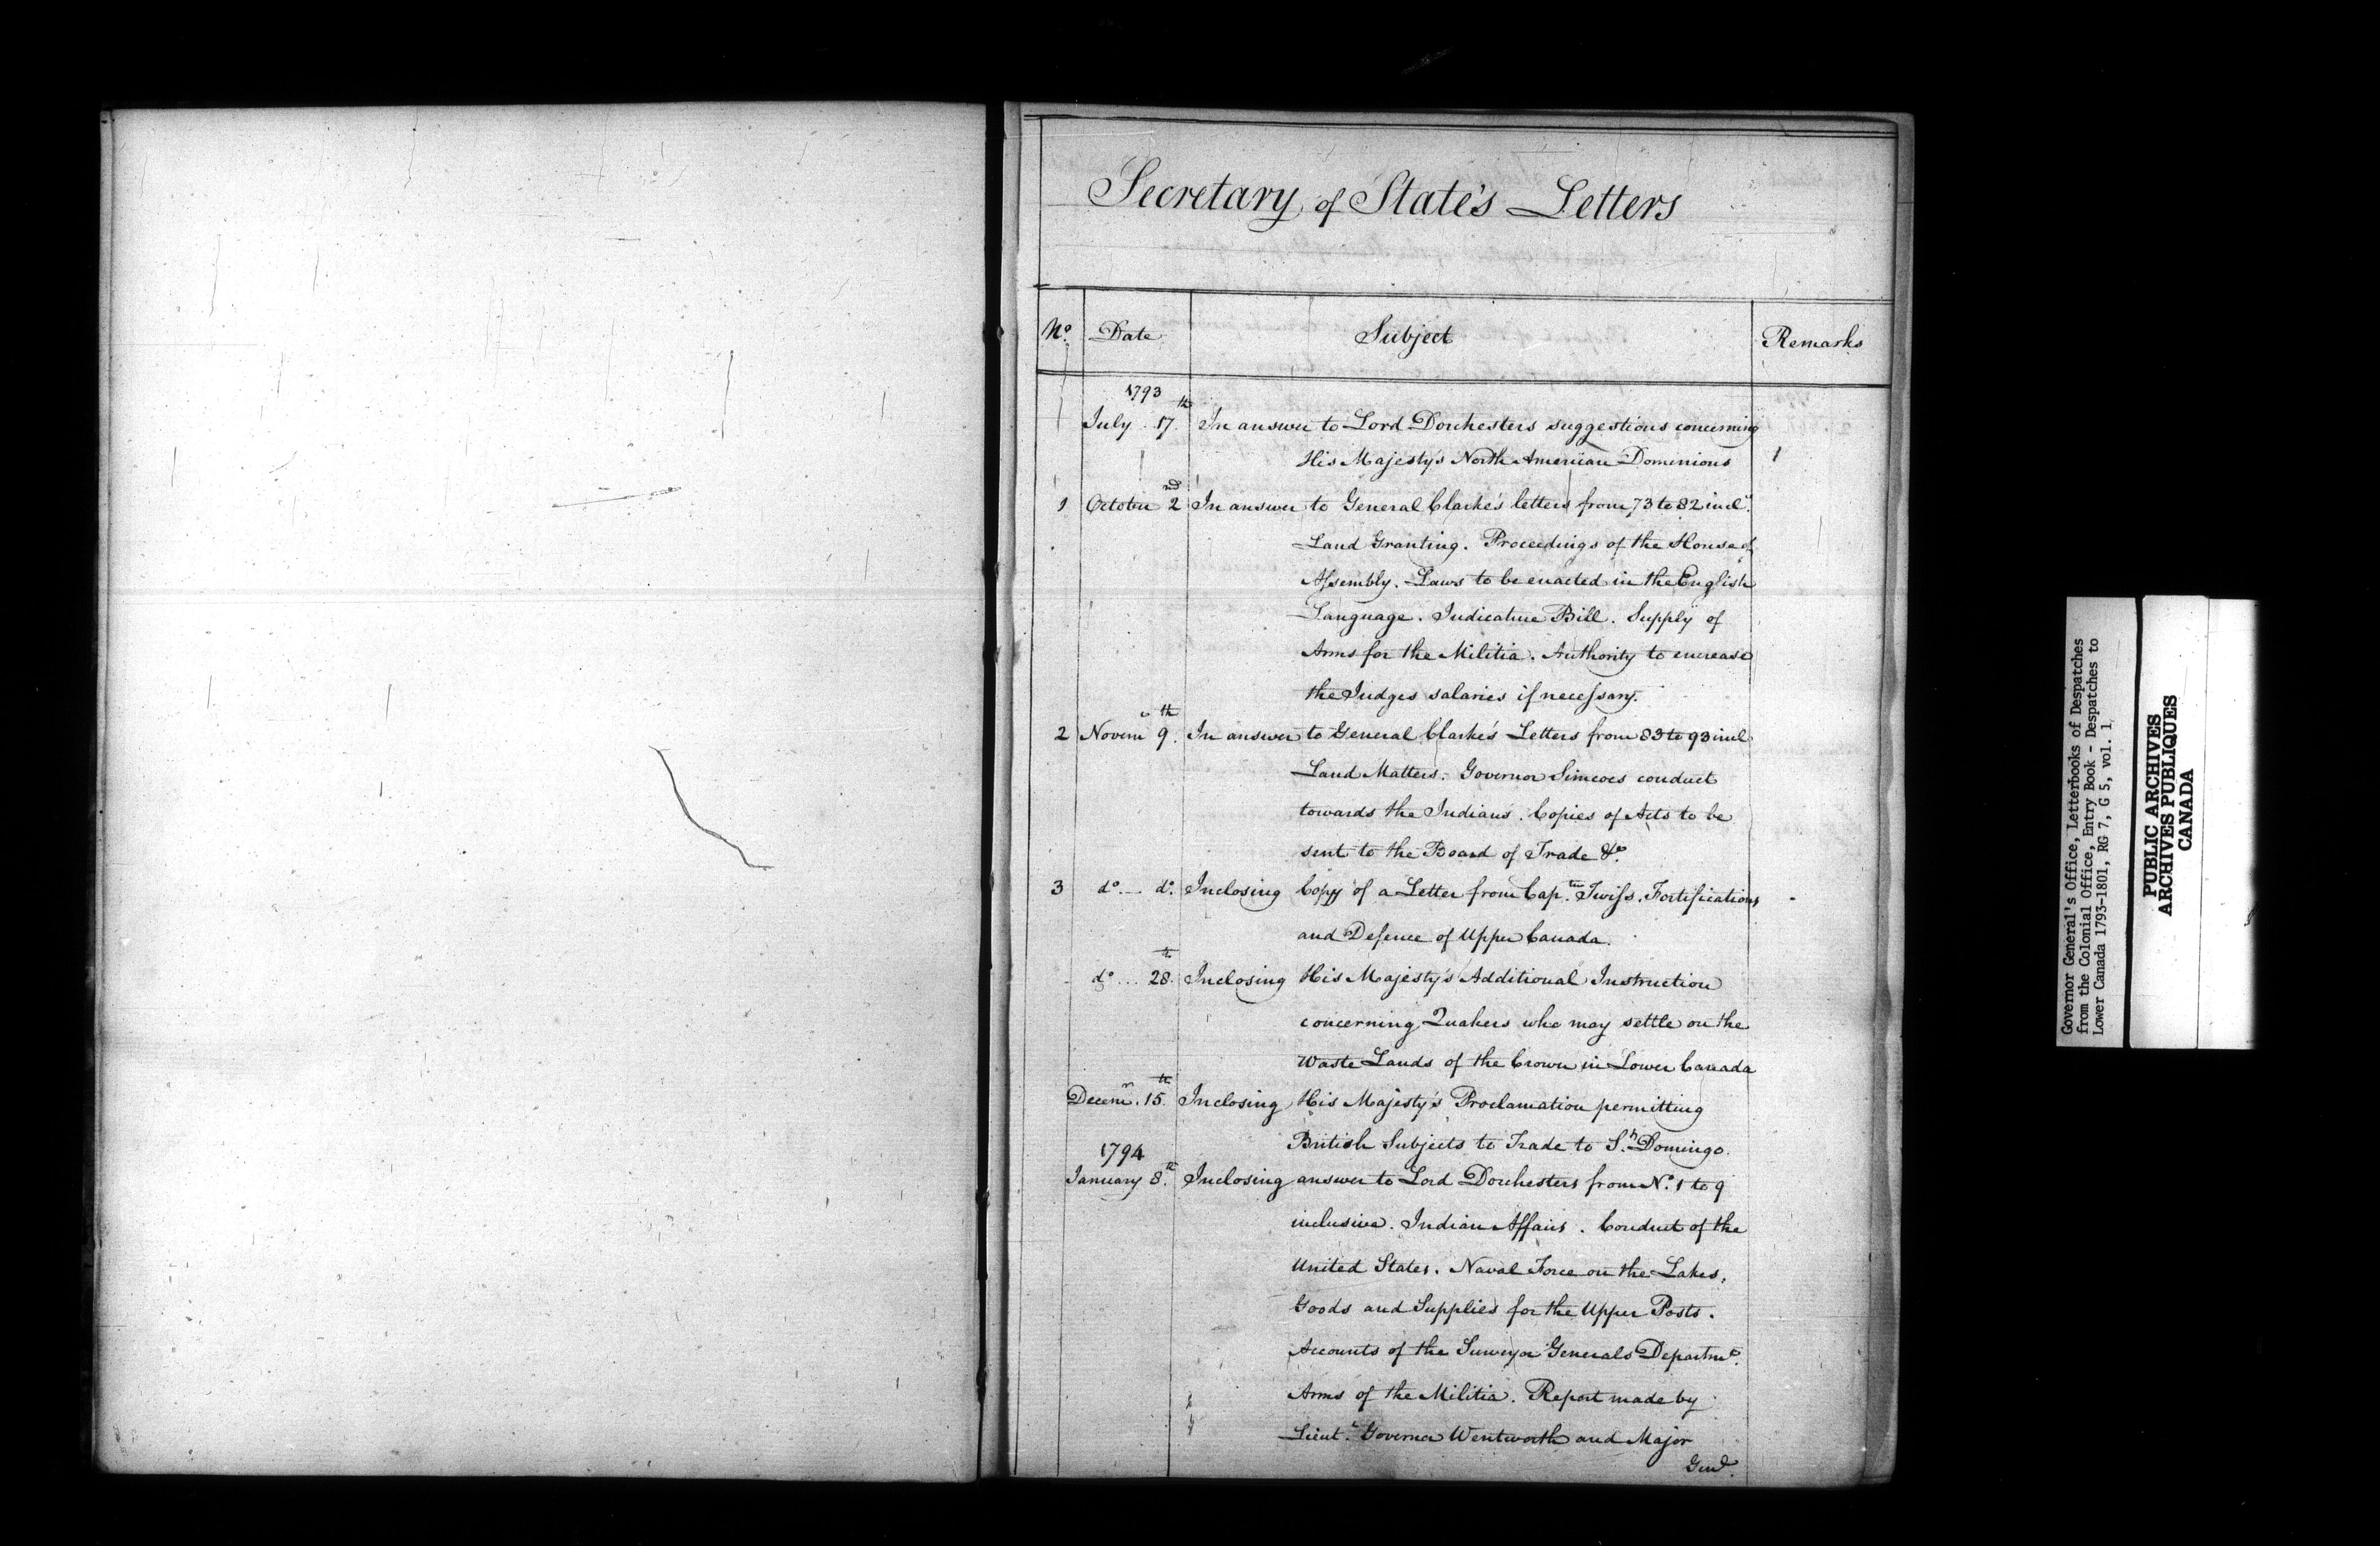 Secretary of State's Letters
No. Date Subject Remarks
1793
July 17th In answer to Lord Dorchesters suggestions concerning
His Majesty's North American Dominions 1
1 October 2nd In answer to General Clarke's letters from 73 to 82 incl.
Land Granting. Proceedings of the House of
Assembly. Laws to be enacted in the English
Language. Judicature Bill. Supply of
Arms for the Militia. Authority to encrease
the Judges salaries if necessary.
2 Novem 9th. In answer to General Clarke's Letters from 83 to 93 incl
Land Matters. Governor Simcoes conduct
towards the Indians. Copies of Acts to be
sent to the Board of Trade &c.
3 do. do. Inclosing Copy of a Letter from Captn. Twiss. Fortifications
and Defence of Upper Canada.
do ... 28th. Inclosing His Majesty's Additional Instruction
concerning Quakers who may settle on the
Waste Lands of the Crown in Lower Canada
Decemr. 15th. Inclosing His Majesty's Proclamation permitting
British Subjects to Trade to St. Domingo.
1794
January 8th. Inclosing answer to Lord Dorchesters from No. 1 to 9
inclusive. Indian Affairs. Conduct of the
United States. Naval Force on the Lakes.
Goods and Supplies for the Upper Posts.
Accounts of the Surveyor Generals Departmt.
Arms of the Militia. Report made by
Lieut. Governor Wentworth and Major
Genl.
Governor General's Office, Letterbooks of Despatches
from the Colonial Office, Entry Book - Despatches to
Lower Canada 1793-1801, RG 7, G 5, vol. 1
PUBLIC ARCHIVES
ARCHIVES PUBLIQUES
CANADA